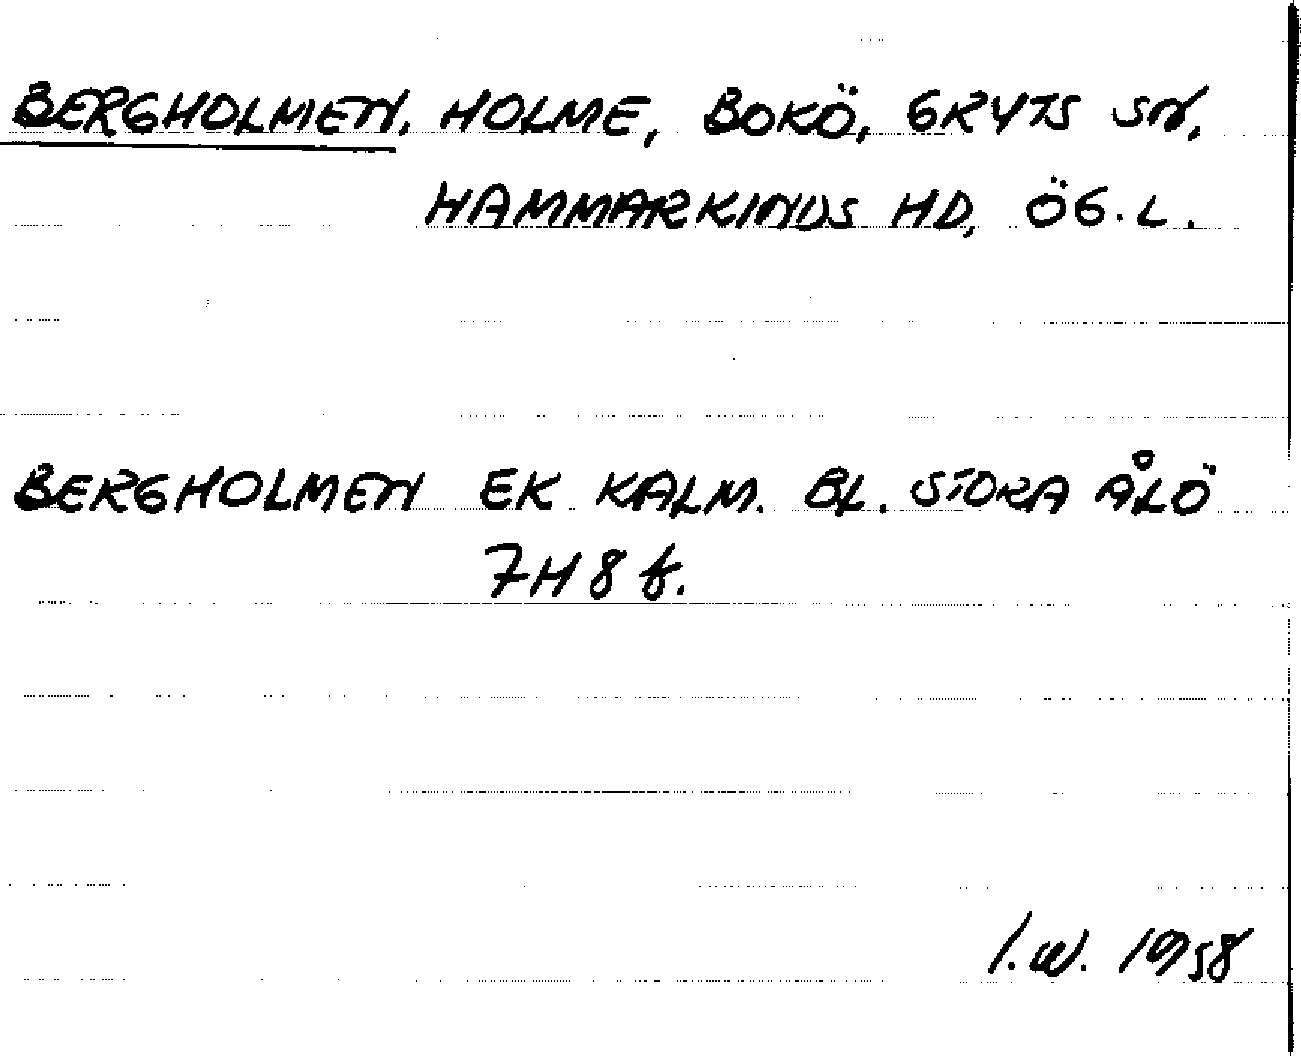 BERGHOLMEN, HOLME, BOKÖ, GRYTS SN,
HAMMARKINDS HD, ÖG.L.
BERGHOLMEN EK KALM. BL. STORA ÅLÖ
7H 8 f.
I.W. 1958